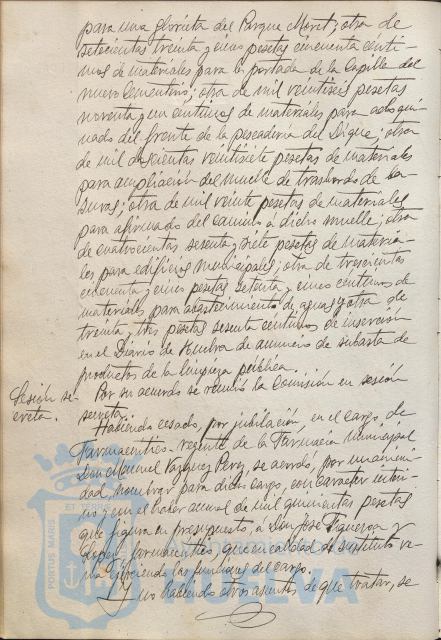 para una glorieta del Parque Moret; otra de
setecientas treinta y cinco pesetas cincuenta cénti-
mos de materiales para la portada de la Capilla del
nuevo Cementerio; otra de mil veintiseis pesetas
noventa y un centimos de materiales para adoqui-
nado del frente de la pescaderia del Dique; otra
de mil doscientas veintisiete pesetas de materiales
para ampliación del muelle de trasbordo de ba-
suras; otra de mil veinte pesetas de materiales
para afirmado del camino á dicho muelle; otra
de cuatrocientas sesenta y siete pesetas de materia-
les para edificios municipales; otra de trescientas
cincuenta y cinco pesetas setenta y cinco centimos de
materiales para abastecimiento de aguas y otra de
treinta y tres pesetas sesenta centimos de inserción
en el Diario de Huelva de anuncio de subasta de
productos de la limpieza pública.
Sesión se-
creta.
Por su acuerdo se reunió la Comisión en sesión
secreta.
Habiendo cesado, por jubilación, en el cargo de
Farmaceutico-regente de la Farmacia Municipal
Don Manuel Vazquez Perez, se acordó, por unanimi-
dad, nombrar para dicho cargo, con caracter interi-
no y con el haber anual de mil quinientas pesetas
que figura en presupuesto, á Don José Figueroa y
Lopez, farmaceutico, que en calidad de sustituto ve-
nia ejerciendo las funciones del cargo.
Y no habiendo otros asuntos de que tratar, se
PORTUS MARIS ET TERRAE
Ayuntamiento de
HUELVA